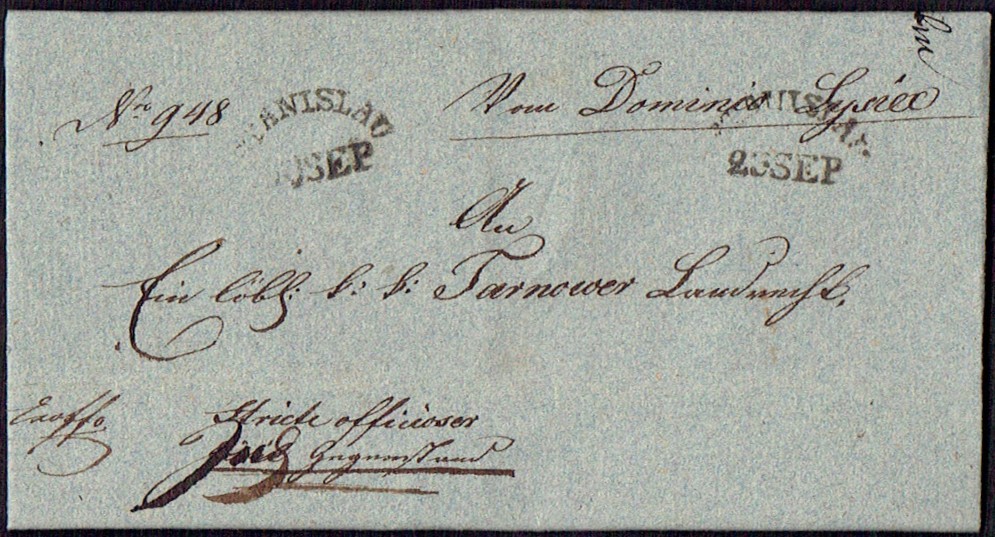 Nro 948
STANISLAU
SEP
Vom Dominio Lysiec
STANISLAU
23SEP
An
Ein löbl: k: k: Tarnower Landrecht.
Exoffo
Stricte officioser
Gegenstand